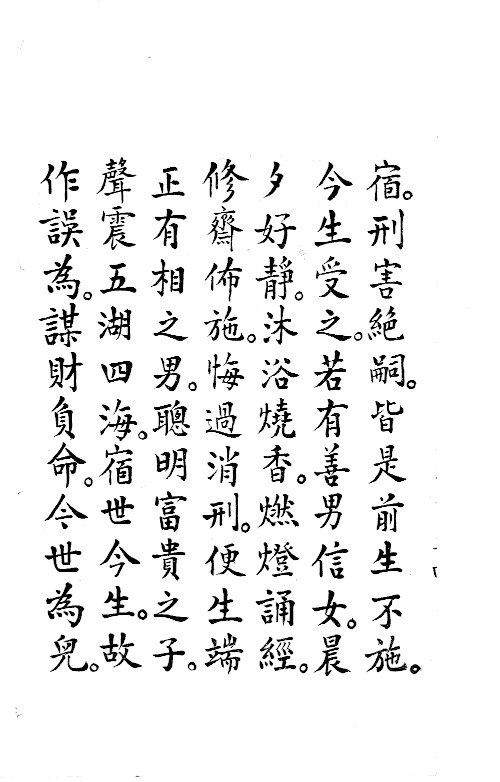 宿。刑害絕嗣。皆是前生不施。
今生受之。若有善男信女。晨
夕好靜。沐浴燒香。燃燈誦經。
修齋佈施。悔過消刑。便生端
正有相之男。聰明富貴之子。
聲震五湖四海。宿世今生。故
作誤為。謀財負命。今世為兒。